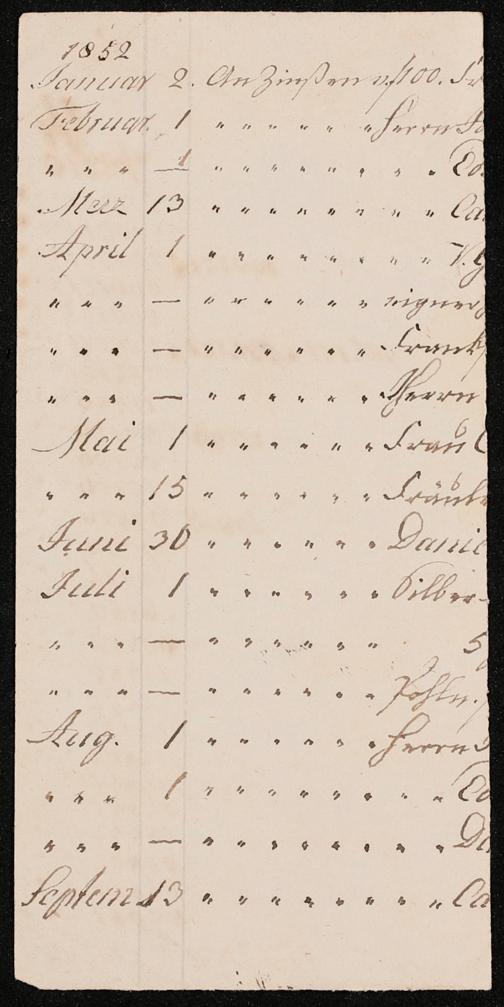 1852
Januar 2. An Zinßen v. f 100. Fr
Februar 1 " " " " " " Herrn
" " " 1 " " " " " " " " " Do
Merz 13 " " " " " " " " " Ca
April 1 " " " " " " " " " V. G
" " " — " " " " " " " eigner
" " " — " " " " " " " Frankf
" " " — " " " " " " " Herrn
Mai 1 " " " " " " " Frau C
" " " 15 " " " " " " " Fräule
Juni 30 " " " " " " " Danie
Juli 1 " " " " " " " Silber-
" " " — " " " " " " " 5
" " " — " " " " " " " Pohln.
Aug. 1 " " " " " " " Herrn
" " " 1 " " " " " " " " " Do
" " " — " " " " " " " " " Do
Septem 13 " " " " " " " " " Ca